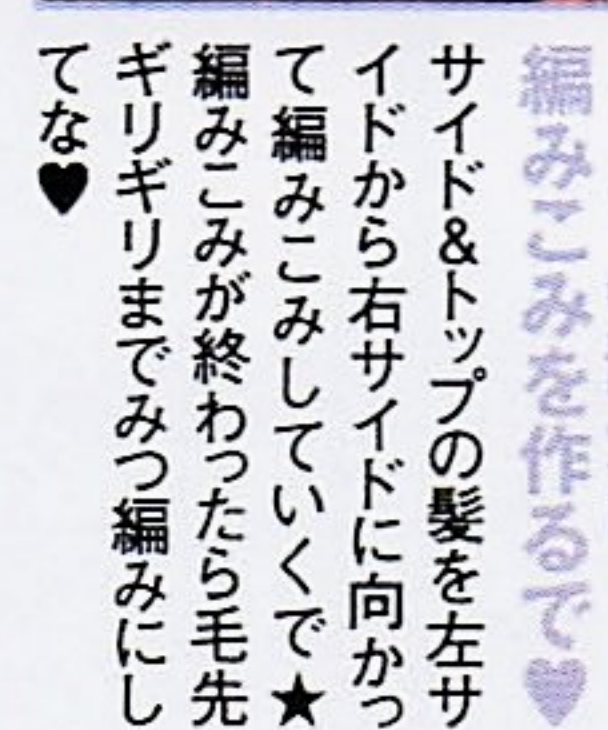 編みこみを作るで♥
サイド&トップの髪を左サ
イドから右サイドに向かっ
て編みこみしていくで★
編みこみが終わったら毛先
ギリギリまでみつ編みにし
てな♥